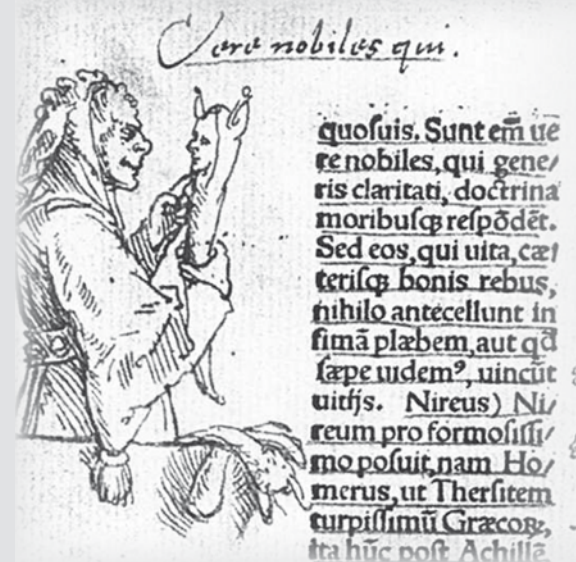 Vere nobiles qui.
quoſuis. Sunt em̄ ue
re nobiles, qui gene/
ris claritati, doctrina
moribuſqꝫ reſpōdēt.
Sed eos, qui uita, cæt
teriſqꝫ bonis rebus,
nihilo antecellunt in
fimā plæbem, aut qđ
ſæpe uidemꝰ, uincūt
uitijs. Nireus) Ni/
reum pro formoſiſſi/
mo poſuit, nam Ho/
merus, ut Therſitem
turpiſſimū Græcoꝝ,
ita hūc poſt Achillē